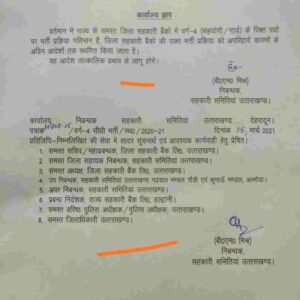 कार्यालय ज्ञाप
वर्तमान में राज्य के समस्त जिला सहकारी बैंकों में वर्ग-4 (सहयोगी/गार्ड) के रिक्त पदों
पर भर्ती प्रक्रिया गतिमान है, जिला सहकारी बैंकों की उक्त भर्ती प्रक्रिया को अपरिहार्य कारणों से
अग्रिम आदेशों तक स्थगित किया जाता है।
यह आदेश तात्कालिक प्रभाव से लागू होंगे।
(बी०एम० मिश्र)
निबन्धक,
सहकारी समितियां उत्तराखण्ड।
कार्यालय निबन्धक सहकारी समितियां उत्तराखण्ड देहरादून।
पत्रांक /वर्ग-4 सीधी भर्ती/स्था०/2020-21 दिनांक 15 मार्च 2021
प्रतिलिपि–निम्नलिखित की सेवा में सादर सूचनार्थ एवं आवश्यक कार्यवाही हेतु प्रेषित।
1 समस्त सचिव/महाप्रबन्धक, जिला सहकारी बैंक लि०, उत्तराखण्ड।
2 समस्त जिला सहायक निबन्धक, सहकारी समितियां, उत्तराखण्ड।
3 समस्त अध्यक्ष, जिला सहकारी बैंक लि०, उत्तराखण्ड।
4 उप निबन्धक, सहकारी समितियां उत्तराखण्ड गढ़वाल मण्डल पौड़ी एवं कुमाऊँ मण्डल, अल्मोड़ा।
5 अपर निबन्धक, सहकारी समितियां, उत्तराखण्ड।
6 प्रबन्ध निदेशक, राज्य सहकारी बैंक लि०, हल्द्वानी।
7 समस्त वरिष्ठ पुलिस अधीक्षक/पुलिस अधीक्षक, उत्तराखण्ड।
8 समस्त जिलाधिकारी उत्तराखण्ड।
(बी०एम० मिश्र)
निबन्धक,
सहकारी समितियां उत्तराखण्ड।